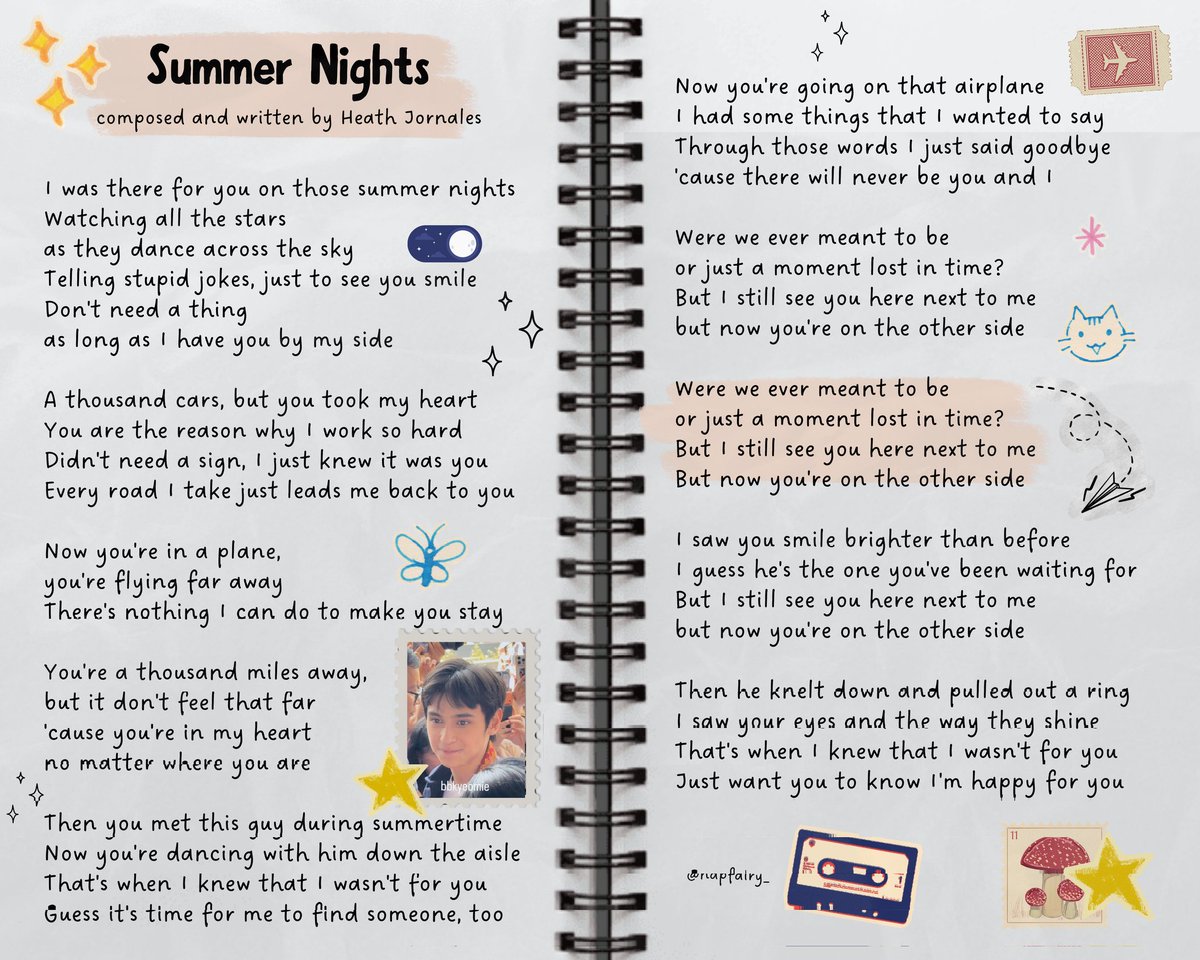 Summer Nights
composed and written by Heath Jornales
I was there for you on those summer nights
Watching all the stars
as they dance across the sky
Telling stupid jokes, just to see you smile
Don't need a thing
as long as I have you by my side
A thousand cars, but you took my heart
You are the reason why I work so hard
Didn't need a sign, I just knew it was you
Every road I take just leads me back to you
Now you're in a plane,
you're flying far away
There's nothing I can do to make you stay
You're a thousand miles away,
but it don't feel that far
'cause you're in my heart
no matter where you are
bbkyeomie
Then you met this guy during summertime
Now you're dancing with him down the aisle
That's when I knew that I wasn't for you
Guess it's time for me to find someone, too
Now you're going on that airplane
I had some things that I wanted to say
Through those words I just said goodbye
'cause there will never be you and I
Were we ever meant to be
or just a moment lost in time?
But I still see you here next to me
but now you're on the other side
Were we ever meant to be
or just a moment lost in time?
But I still see you here next to me
But now you're on the other side
I saw you smile brighter than before
I guess he's the one you've been waiting for
But I still see you here next to me
but now you're on the other side
Then he knelt down and pulled out a ring
I saw your eyes and the way they shine
That's when I knew that I wasn't for you
Just want you to know I'm happy for you
11